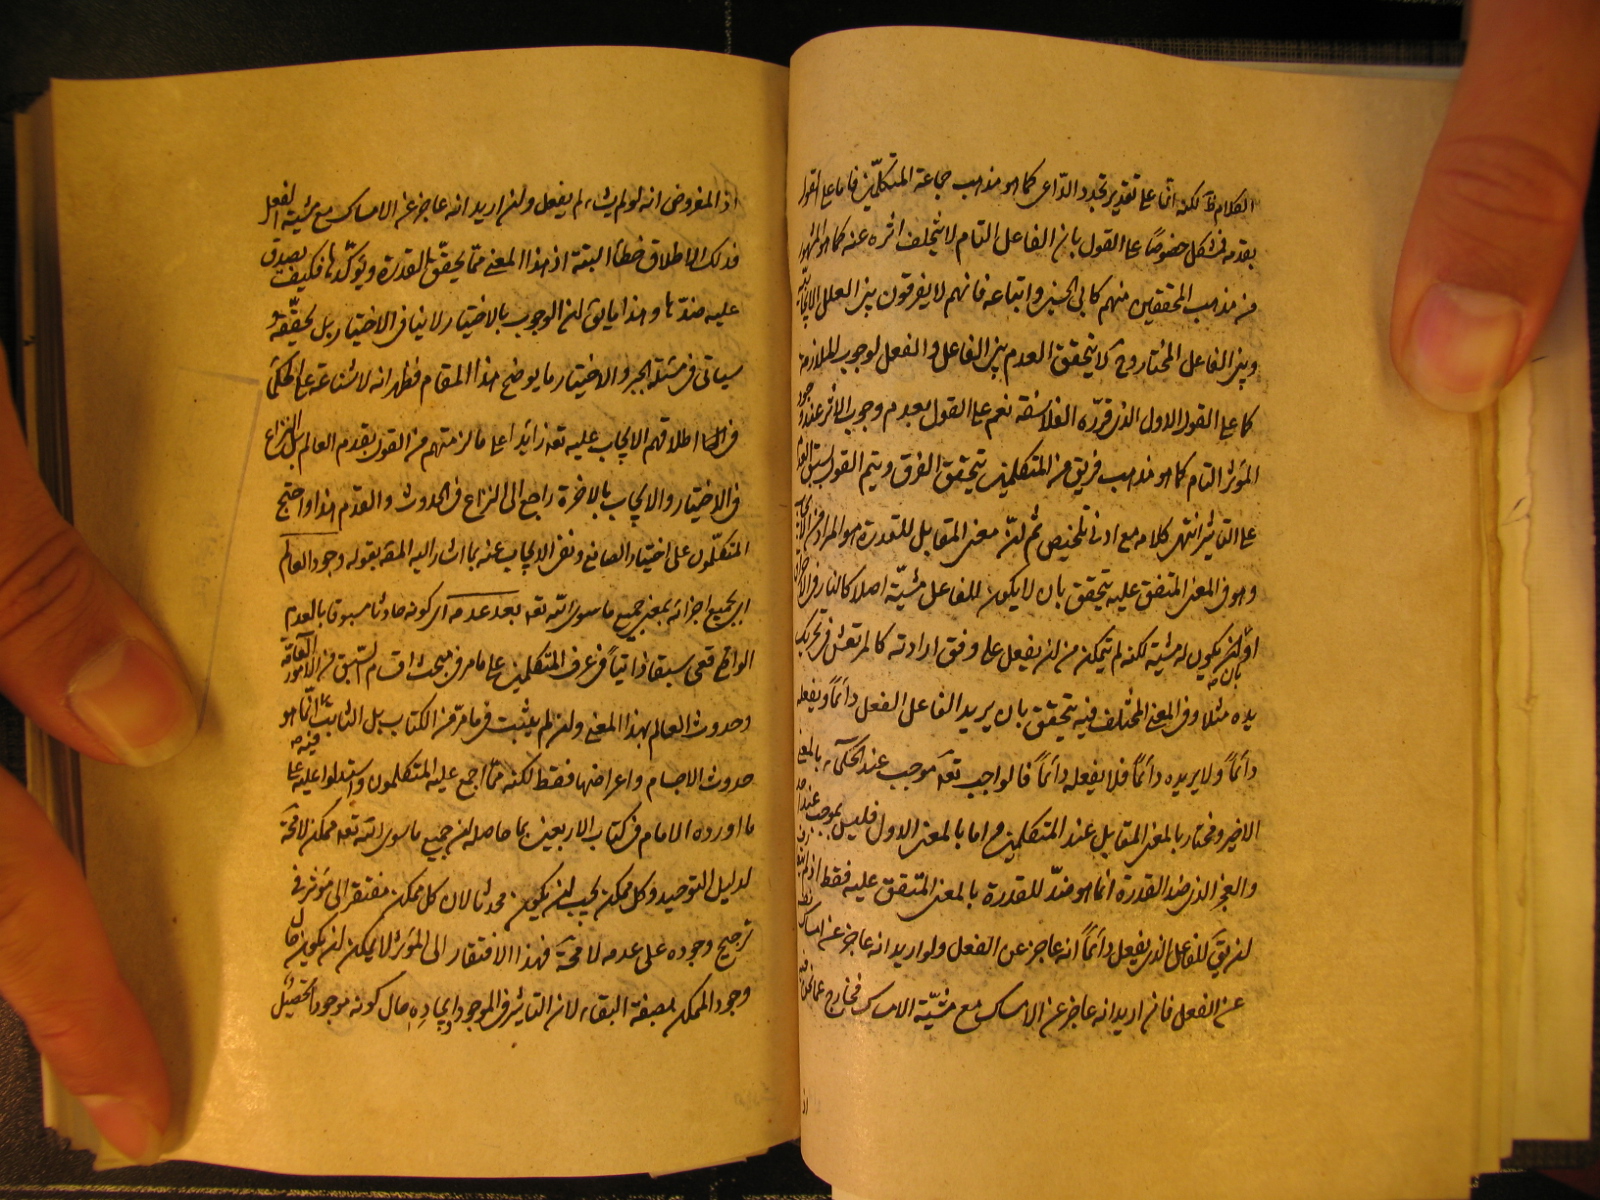 الكلام ظ لكنه انما على تقدير تجدد الداعى كما هو مذهب جماعة المتكلمين فاما على القول
بقدمه فمشكل خصوصا على القول بان الفاعل التام لا يتخلف اثره عنه كما هو المشهور
من مذهب المحققين منهم كابى الحسين واتباعه فانهم لا يفرقون بين العلل الايجابية
وبين الفاعل المختار وح لا يتحقق العدم بين الفاعل والفعل لوجوب الملازمة
كما على القول الاول الذى قرره الفلاسفة نعم على القول بعدم وجوب الاثر عند وجود
المؤثر التام كما هو مذهب فريق من المتكلمين يتحقق الفرق ويتم القول بسبق العدم
على التاثير انتهى كلامه مع ادنى تلخيص ثم ان معنى المقابل للقدرة هو المراد من الايجاب
وهو فى المعنى المتفق عليه يتحقق بان لا يكون للفاعل مشيّة اصلا كالنار فى الاحراق
او بان يكون له مشية لكنه لم يتمكن من ان يفعل على وفق ارادته كالمرتعش فى تحريك
يده مثلا وفى المعنى المختلف فيه يتحقق بان يريد الفاعل الفعل دائماً ويفعله
دائماً ولا يريده دائماً فلا يفعله دائماً فالواجب تعه موجب عند الحكماء بالمعنى
الاخير ومختار بالمعنى المقابل عند المتكلمين واما بالمعنى الاول فليس بموجب عند احد
والعجز الذى ضد القدرة انما هو ضدّ للقدرة بالمعنى المتفق عليه فقط اذ لم
ان يق للفاعل الذى يفعل دائماً انه عاجز عن الفعل ولو اريد انه عاجز عن امساك
عن الفعل فان اريد انه عاجز عن الامساك مع مشيّة الامساك فخارج عما نحن فيه
اذ المفروض انه لو لم يشاء لم يفعل وان اريد انه عاجز عن الامساك مع مشية الفعل
فذلك الاطلاق خطأ البتة اذ هذا المعنى مما يحقق القدرة ويؤكّدها فكيف يصدق
عليه ضدّها وهذا ما يق ان الوجوب بالاختيار لا ينافى الاختيار بل يحقّقه و
سياتى فى مسئلة الجبر والاختيار ما يوضح هذا المقام فظهر انه لا شناعة على الحكماء
فى اطلاقهم الايجاب عليه تعه زائدا على ما لزمتهم من القول بقدم العالم بل النزاع
فى الاختيار والايجاب بالاخرة راجع الى النزاع فى الحدوث والقدم هذا واحتج
المتكلّمون على اختيار الصانع ونفى الايجاب عنه بما اشار اليه المصه بقوله وجود العالم
اى بجميع اجزائه بمعنى جميع ما سوى الله تعه بعد عدمه اى كونه حادثا مسبوقا بالعدم
الواقعى سبقا ذاتياً فى عرف المتكلمين على ما مر فى مبحث اقسام السبق من الامور العامّة
وحدوث العالم بهذا المعنى وان لم يثبت فيما مر من الكتاب بل الثابت فيه انّما هو
حدوث الاجسام واعراضها فقط لكنه مما اجمع عليه المتكلمون واستدلوا عليه على
ما اورده الامام فى كتاب الاربعين بما حاصله ان جميع ما سوى الله تعه ممكن لا محة
لدليل التوحيد وكل ممكن يجب ان يكون محدثا لان كل ممكن مفتقر الى مؤثر فى
ترجيح وجوده على عدمه لا محة فهذا الافتقار الى المؤثر لا يمكن ان يكون حال
وجود الممكن لصفة البقاء لان التاثير فى الموجود وايجاده حال كونه موجودا تحصيل